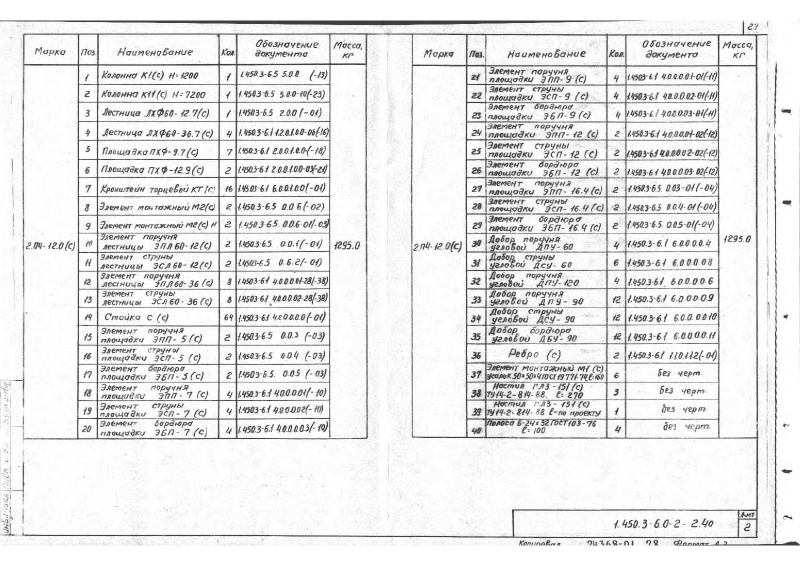 27
Марка Поз. Наименование Кол. Обозначение документа Масса, кг
2.П4-12.0(с) 1295.0
1 Колонна К1(с) Н=1200 1 1.450.3-6.5 5.0.0 (-13)
2 Колонна К11(с) Н=7200 2 1.450.3-6.5 5.0.0-10(-23)
3 Лестница ЛХФ60-12.7(с) 1 1.450.3-6.5 2.0.0 (-01)
4 Лестница ЛХФ60-36.7(с) 4 1.450.3-6.1 1.2.0.1.0.0-06(-16)
5 Площадка ПХФ-9.7(с) 7 1.450.3-6.1 2.0.0.1.0.0(-18)
6 Площадка ПХФ-12.9(с) 2 1.450.3-6.1 2.0.0.1.0.0-03(-21)
7 Кронштейн торцевой КТ(с) 16 1.450.3-6.1 6.0.0.1.0.0 (-01)
8 Элемент монтажный М2(с) 2 1.450.3-6.5 0.0.6 (-02)
9 Элемент монтажный М2(с) Н 2 1.450.3-6.5 0.0.6-01(-03)
10 Элемент поручня лестницы ЭПЛ60-12(с) 2 1.450.3-6.5 0.0.1(-01)
11 Элемент струны лестницы ЭСЛ60-12(с) 2 1.450.3-6.5 0.6.2(-01)
12 Элемент поручня лестницы ЭПЛ60-36(с) 8 1.450.3-6.1 4.0.0.0.01-28(-38)
13 Элемент струны лестницы ЭСЛ60-36(с) 8 1.450.3-6.1 4.0.0.0.02-28(-38)
14 Стойка С (с) 64 1.450.3-6.1 4.0.0.0.0 (-01)
15 Элемент поручня площадки ЭПП-5(с) 2 1.450.3-6.5 0.0.3 (-03)
16 Элемент струны площадки ЭСП-5(с) 2 1.450.3-6.5 0.0.4 (-03)
17 Элемент бордюра площадки ЭБП-5(с) 2 1.450.3-6.5. 0.0.5 (-03)
18 Элемент поручня площадки ЭПП-7(с) 4 1.450.3-6.1 4.0.0.0.01(-10)
19 Элемент струны площадки ЭСП-7(с) 4 1.450.3-6.1 4.0.0.0.02(-10)
20 Элемент бордюра площадки ЭБП-7(с) 4 1.450.3-6.1 4.0.0.0.03(-10)
Марка Поз. Наименование Кол. Обозначение документа Масса, кг
2.П4-12.0(с) 1295.0
21 Элемент поручня площадки ЭПП-9(с) 4 1.450.3-6.1 4.0.0.0.01-01(-11)
22 Элемент струны площадки ЭСП-9(с) 4 1.450.3-6.1 4.0.0.0.02-01(-11)
23 Элемент бордюра площадки ЭБП-9(с) 4 1.450.3-6.1 4.0.0.0.03-01(-11)
24 Элемент поручня площадки ЭПП-12(с) 2 1.450.3-6.1 4.0.0.0.01-02(-12)
25 Элемент струны площадки ЭСП-12(с) 2 1.450.3-6.1 4.0.0.0.02-02(-12)
26 Элемент бордюра площадки ЭБП-12(с) 2 1.450.3-6.1 4.0.0.0.03-02(-12)
27 Элемент поручня площадки ЭПП-16.4(с) 2 1.450.3-6.5 0.0.3-01(-04)
28 Элемент струны площадки ЭСП-16.4(с) 2 1.450.3-6.5 0.0.4-01(-04)
29 Элемент бордюра площадки ЭБП-16.4(с) 2 1.450.3-6.5 0.0.5-01(-04)
30 Добор поручня угловой ДПУ-60 4 1.450.3-6.1 6.0.0.0.0.4
31 Добор струны угловой ДСУ-60 6 1.450.3-6.1 6.0.0.0.0.8
32 Добор поручня угловой ДПУ-120 4 1.450.3-6.1 6.0.0.0.0.6
33 Добор поручня угловой ДПУ-90 12 1.450.3-6.1 6.0.0.0.0.9
34 Добор струны угловой ДСУ-90 12 1.450.3-6.1 6.0.0.0.0.10
35 Добор бордюра угловой ДБУ-90 12 1.450.3-6.1 6.0.0.0.0.11
36 Ребро (с) 2 1.450.3-6.1 1.1.0.1.1.2(-01)
37 Элемент монтажный М1(с) уголок 50×50×4 ГОСТ 19771-74, ℓ=160 6 без черт.
38 Настил ГЛЗ-151(с) ТУ14-2-814-88, ℓ=270 3 без черт.
39 Настил ГЛЗ-151(с) ТУ14-2-814-88 ℓ-по проекту 1 без черт.
40 Полоса Б-2 4×32 ГОСТ 103-76 ℓ=100 4 без черт.
1.450.3-6.0-2-2.40
Лист
2
Копировал 24368-01 28 Формат А3